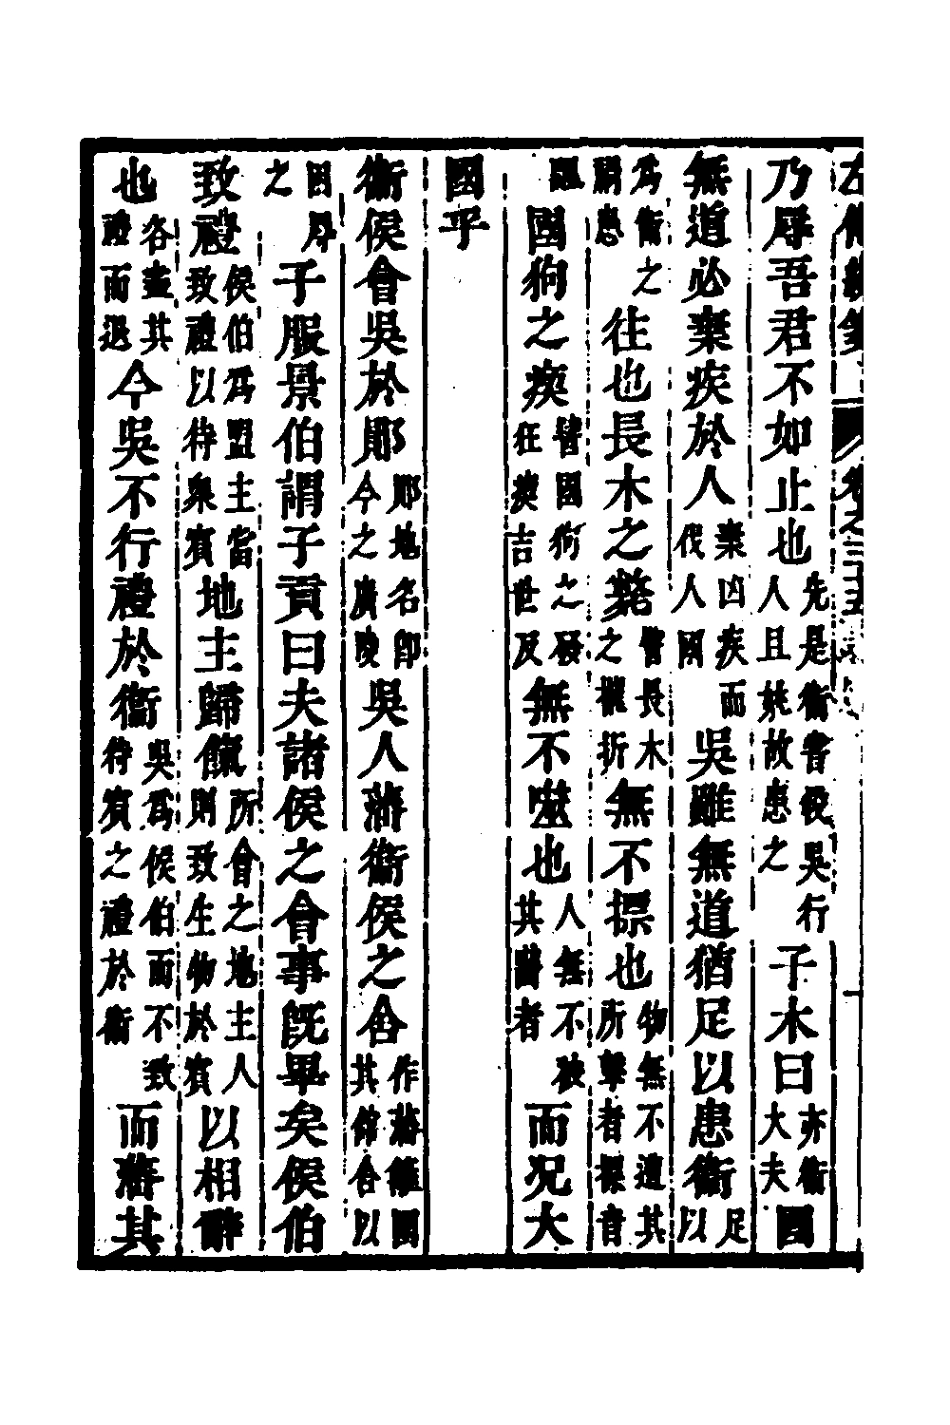 左傳統箋　卷之三十五
乃辱吾君不如止也先是衛嘗殺吳行人且姚故患之子木曰亦衛大夫國
無道必棄疾於人棄凶疾而伐人國吳雖無道猶足以患衛足以
爲衛之禍患往也長木之斃譬長木之摧折無不摽也物無不遭其所擊者摽音
飄國狗之瘈譬國狗之發狂瘈吉世反無不噬也人無不被其齧者而况大
國乎
衛侯會吳於鄖鄖地名即今之廣陵吳人藩衛侯之舍作藩籬圍其館舍以
困辱之子服景伯謂子貢曰夫諸侯之會事旣畢矣侯伯
致禮侯伯爲盟主當致禮以待衆賓地主歸餼所會之地主人則致生物於賓以相辭
也各盡其禮而退今吳不行禮於衛吳爲侯伯而不致待賓之禮於衛而藩其